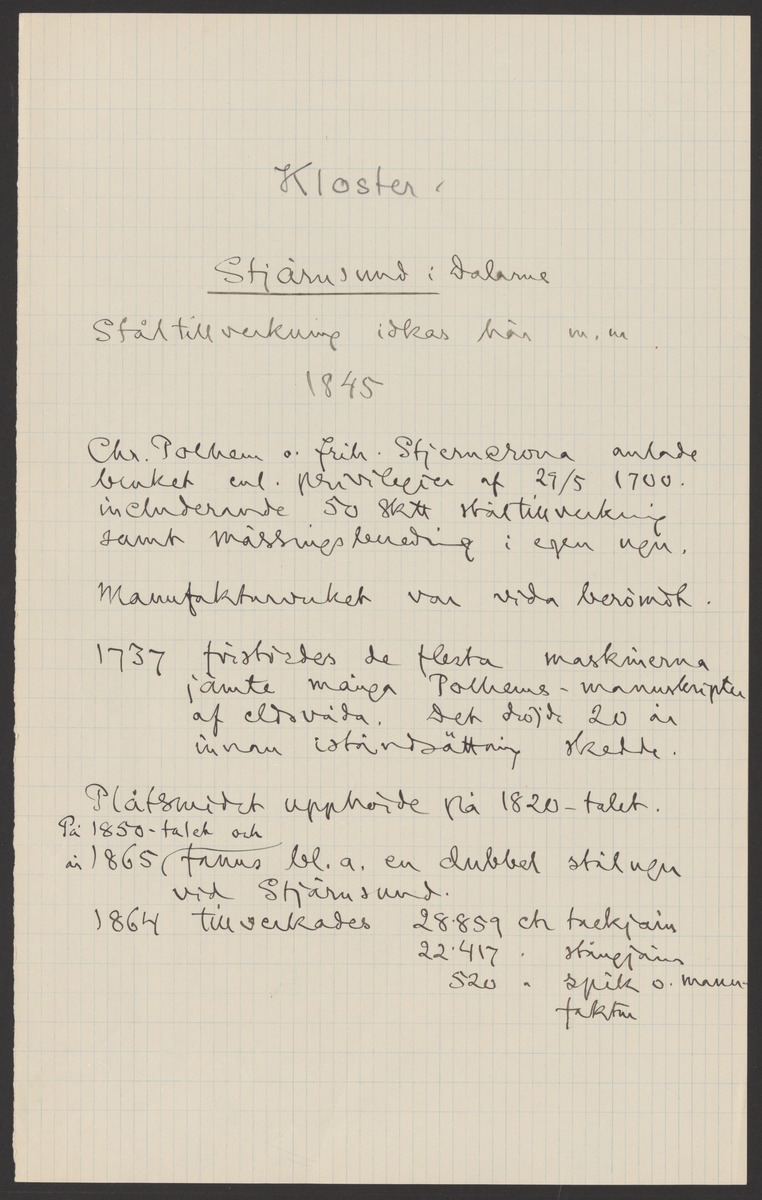 Kloster.
Stjärnsund i Dalarne
Ståltillverkning idkas här m.m.
1845
Chr. Polhem o. frih. Stjerncrona anlade
bruket enl. privilegier af 29/5 1700.
includerande 50 sk₶ ståltillverkning
samt mässingsberedning i egen ugn.
Manufakturverket var vida berömdt.
1737 förstördes de flesta maskinerna
jämte många Polhems-manuskripter
af eldsvåda. Det dröjde 20 år
innan iståndsättning skedde.
Plåtsmidet upphörde på 1820-talet.
På 1850-talet och
år 1865 fanns bl.a. en dubbel stålugn
vid Stjärnsund.
1864 tillverkades 28.859 ctr tackjärn
22.417 " stångjärn
520 " spik o. manu-
faktur